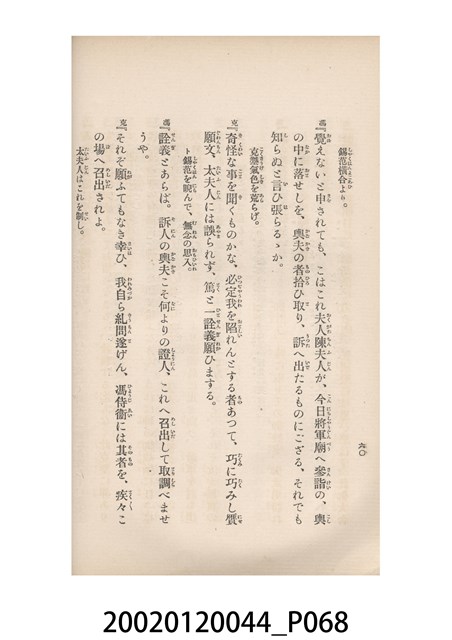 六〇
錫范橫合より。
馮『覺えないと申されても、こはこれ夫人陳夫人が、今日將軍廟へ參詣の、輿
の中に落せしを、輿夫の者拾ひ取り、訴へ出たるものにござる、それでも
知らぬと言ひ張らるゝか。
克塽氣色を荒らげ。
克『奇怪な事を聞くものかな、必定我を陷れんとする者あつて、巧に巧みし贋
願文、太夫人には誤られず、篤と一詮義願ひまする。
ト錫范を睨んで、無念の思入。
馮『詮義とあらば。訴人の輿夫こそ何よりの證人、これへ召出して取調べませ
うや。
克『それぞ願ふてもなき幸ひ、我自ら糺問遂げん、馮侍衞には其者を、疾々こ
の場へ召出されよ。
太夫人はこれを制し。
20020120044_P068